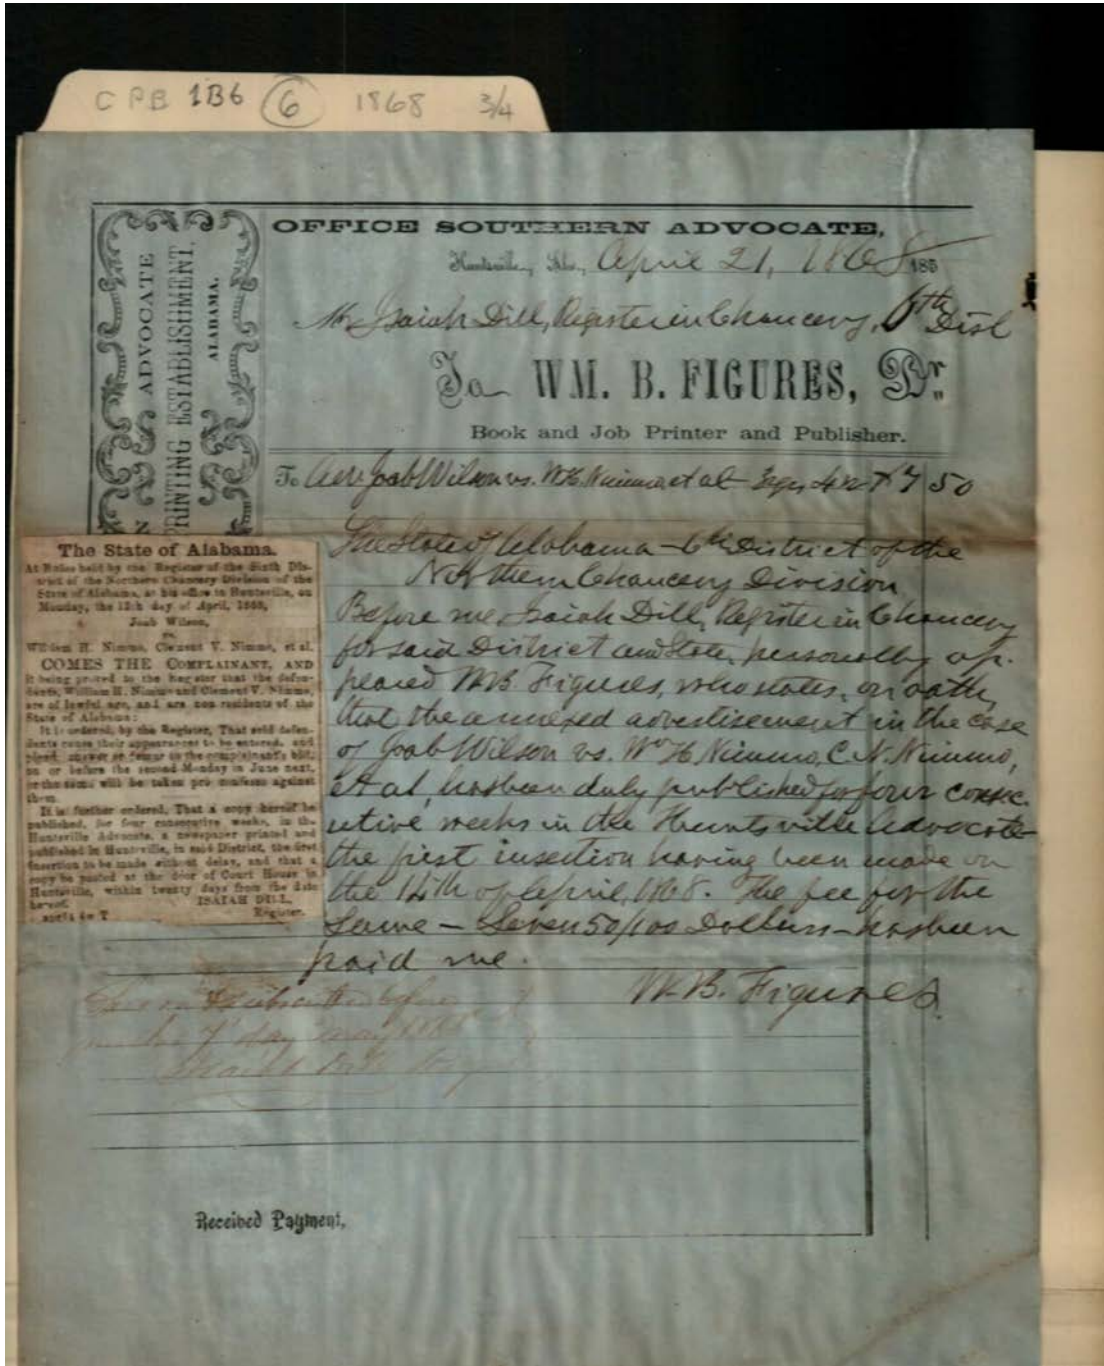 CPB 1B6 6 1868 3/4
ADVOCATE
PRINTING ESTABLISHMENT,
ALABAMA.
OFFICE SOUTHERN ADVOCATE,
Huntsville, Ala., April 21, 1868 185
Mr Isaiah Dill, Register in Chancery, 6th Dist
To WM. B. FIGURES, Dr.
Book and Job Printer and Publisher.
To Adv. Joab Wilson vs. W.H. Nimmo, et al 4w $7 50
The State of Alabama.
At Rules held by the Register of the Sixth Dis-
trict of the Northern Chancery Division of the
State of Alabama, at his office in Huntsville, on
Monday, the 13th day of April, 1868,
Joab Wilson,
vs.
William H. Nimmo, Clement V. Nimmo, et al.
COMES THE COMPLAINANT, AND
it being proved to the Register that the defen-
dants, William H. Nimmo and Clement V. Nimmo,
are of lawful age, and are non residents of the
State of Alabama:
It is ordered, by the Register, That said defen-
dants cause their appearance to be entered, and
plead, answer or demur to the complainant's bill,
on or before the second Monday in June next,
or the same will be taken pro confesso against
them.
It is further ordered, That a copy hereof be
published, for four consecutive weeks, in the
Huntsville Advocate, a newspaper printed and
published in Huntsville, in said District, the first
insertion to be made without delay, and that a
copy be posted at the door of Court House in
Huntsville, within twenty days from the date
hereof. ISAIAH DILL,
apr14 4w T Register.
The State of Alabama - 6th District of the
Northern Chancery Division
Before me, Isaiah Dill, Register in Chancery
for said District and State, personally ap-
peared W.B. Figures, who states, on oath,
that the annexed advertisement in the case
of Joab Wilson vs. Wm H Nimmo, C.N. Nimmo,
et al, has been duly published for four consec-
utive weeks in the Huntsville Advocate
the first insertion having been made on
the 14th of April, 1868. The fee for the
same - Seven 50/100 Dollars - has been
paid me.
W.B. Figures
before
7 day may 1868
Isaiah Dill Reg
Received Payment,